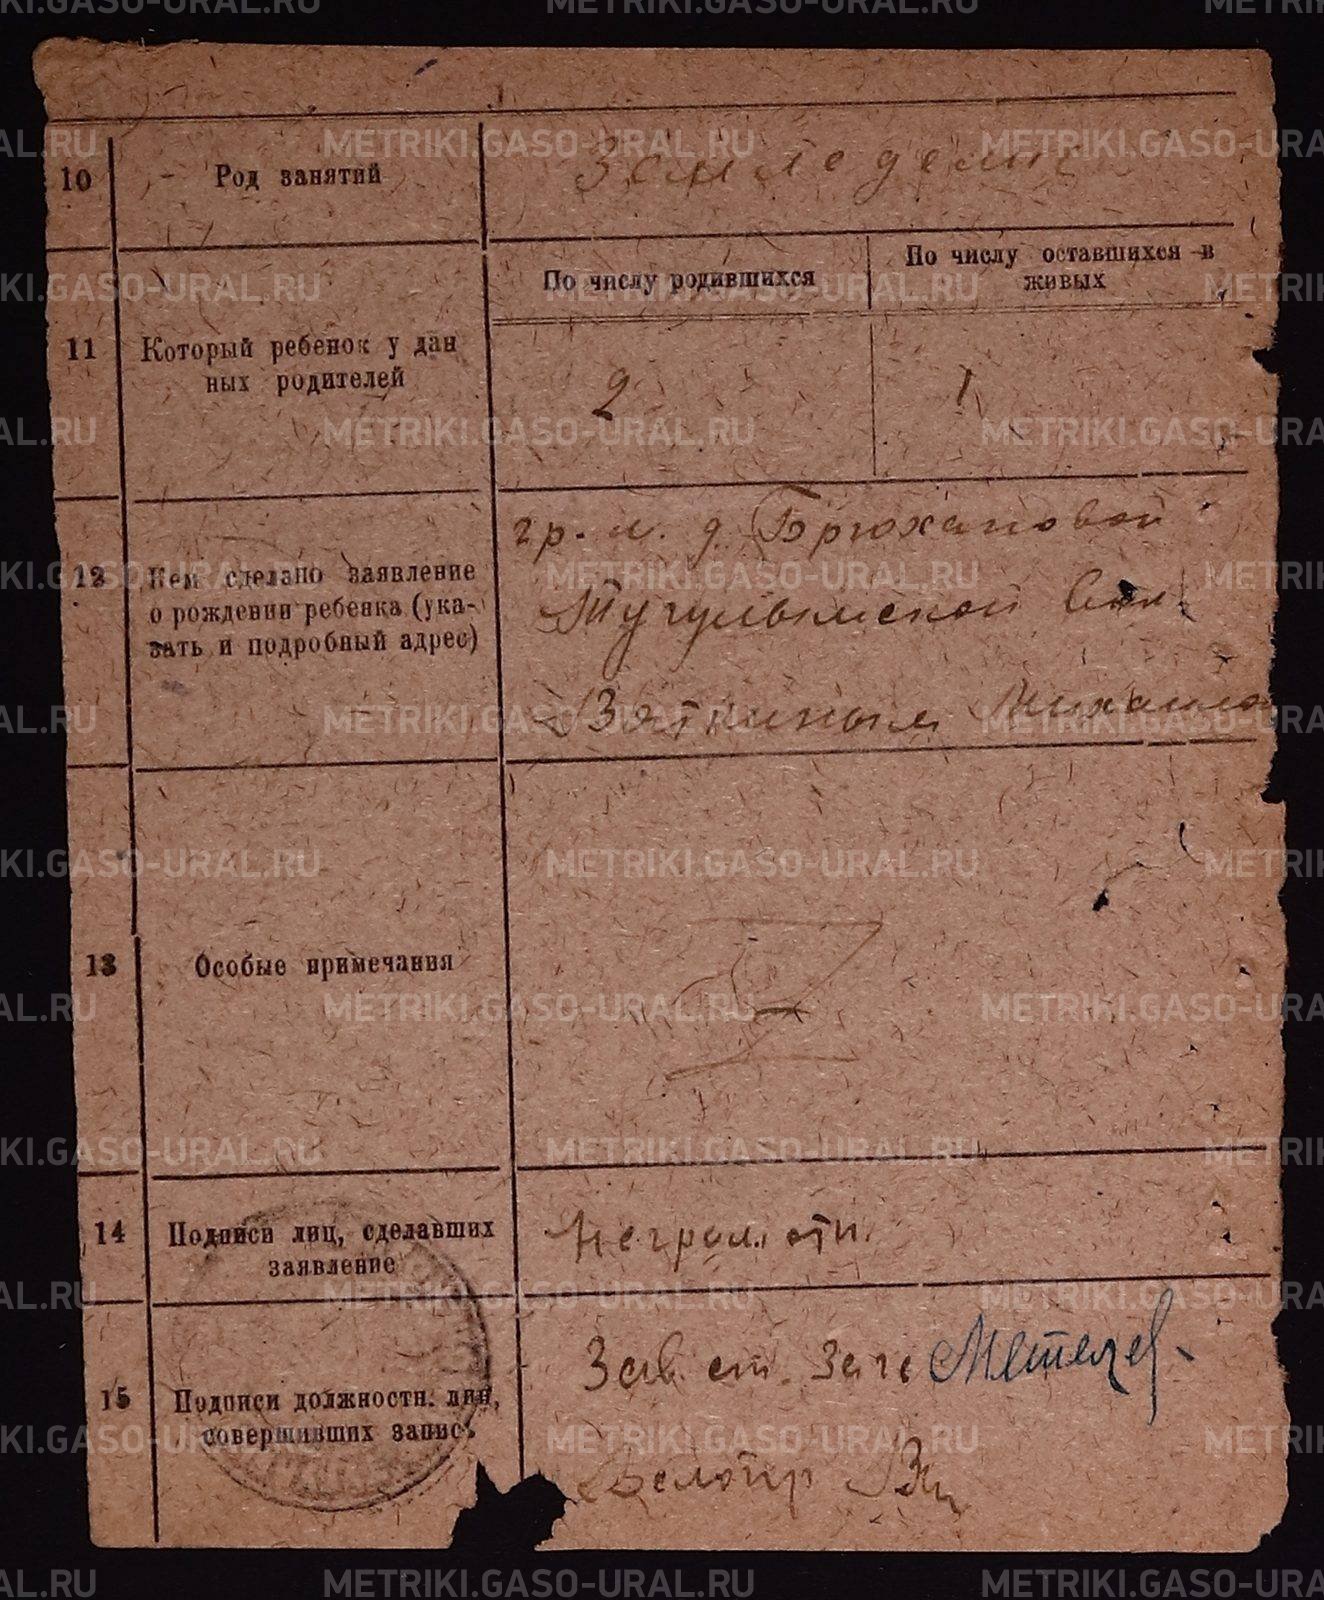 10 Род занятий Земледелие
По числу родившихся
По числу оставшихся в
живых
11 Который ребенок у дан
ных родителей
2 1
гр-м. д. Брюхановой
12 Кем сделано заявление
о рождении ребенка (ука-
зать и подробный адрес)
Тугулымской Вол.
Вяткиным Михаилом
13 Особые примечания
14 Подписи лиц, сделавших
заявление
Неграмотн.
15 Подписи должностн. лиц,
совершивших запись
Зав. ст. загс Метелев
Делопр
METRIKI.GASO-URAL.RU